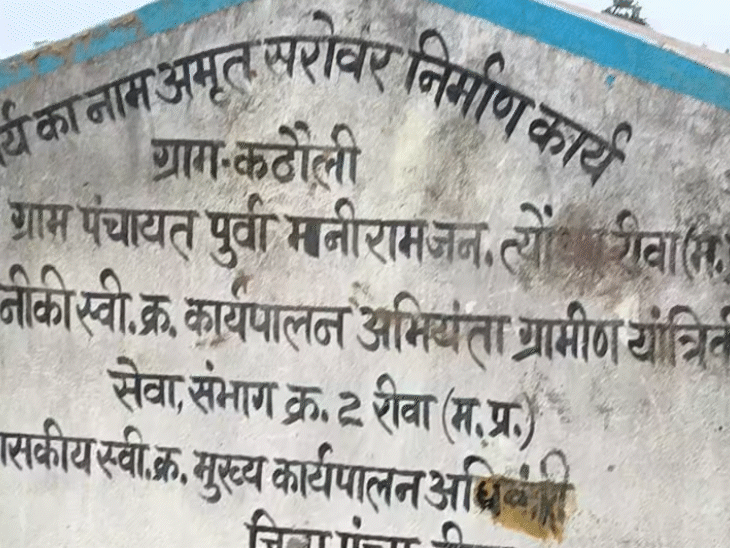 र्य का नाम अमृत सरोवर निर्माण कार्य
ग्राम-कठौली
ग्राम पंचायत पुर्वा मनीराम जन. त्यों रीवा (म.
नीकी स्वी. क्र. कार्यपालन अभियंता ग्रामीण यांत्रिकी
सेवा, संभाग क्र. 2 रीवा (म. प्र.)
ासकीय स्वी. क्र. मुख्य कार्यपालन
जिला पंचा